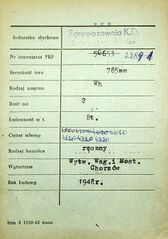 Jednostka służbowa Parowozownia K.D.
Nr inwentarza PKP 50653
Szerokość toru 785mm
Rodzaj wagonu Wh
Ilość osi 2
Ładowność w t. 8t.
Ciężar własny
Rodzaj hamulca ręczny
Wytwórnia Wytw. Wag. i Most. Chorzów
Rok budowy 1948r.